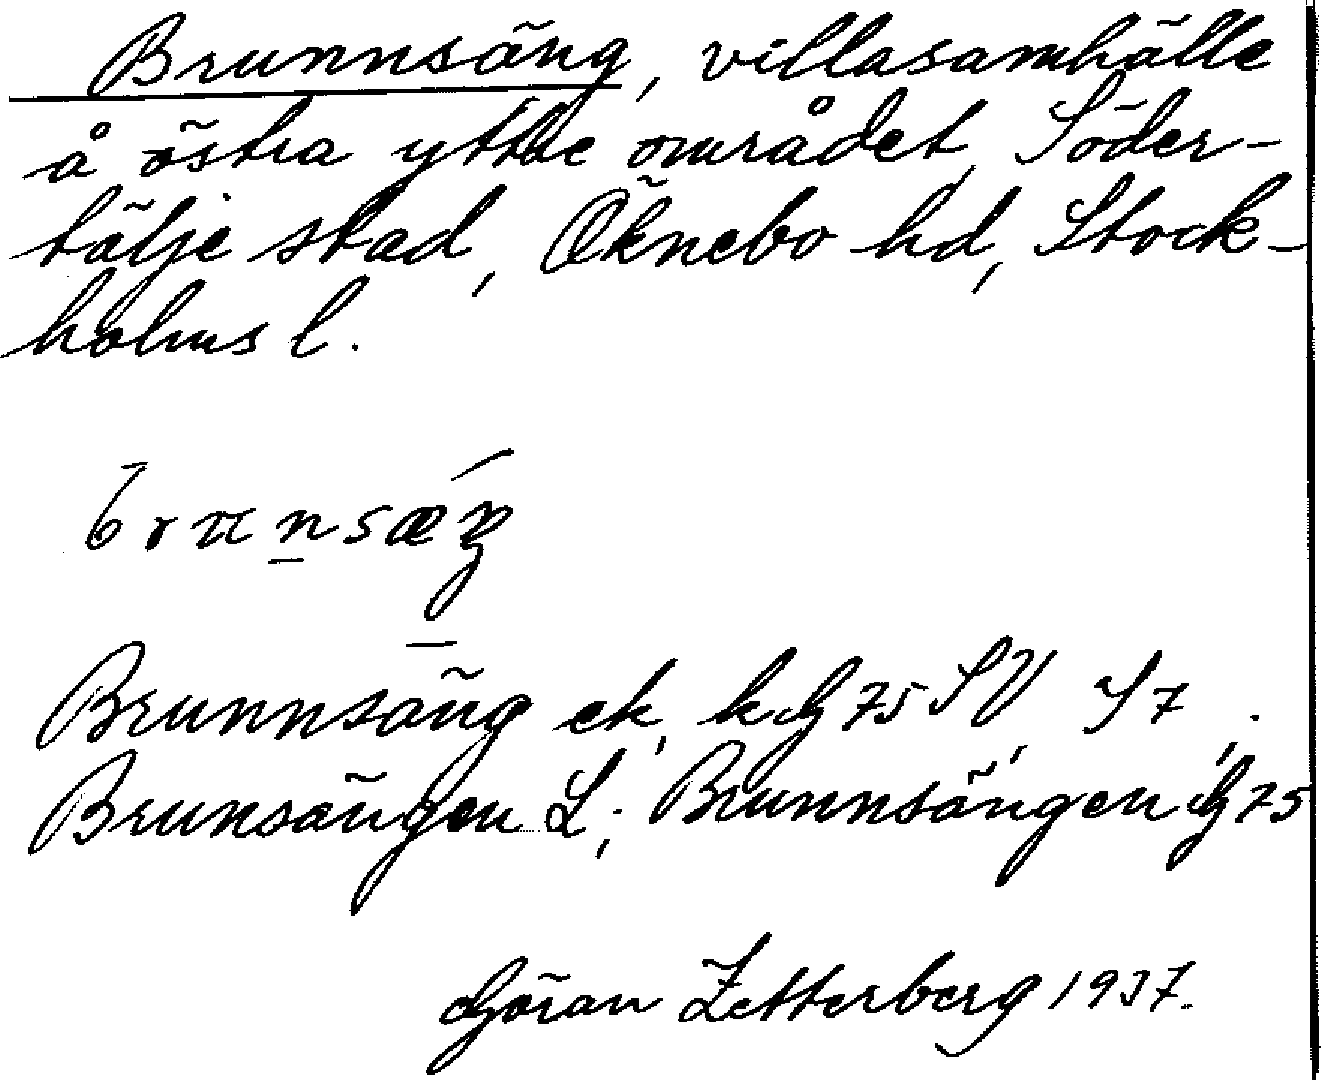 Brunnsäng, villasamhälle
å östra yttre området, Söder-
tälje stad, Öknebo hd, Stock-
holms l.
brunsæŋ
Brunnsäng ek, k. G 75 SV, S 7,
Brunsängen L; Brunnsängen G 75
Göran Zetterberg 1937.